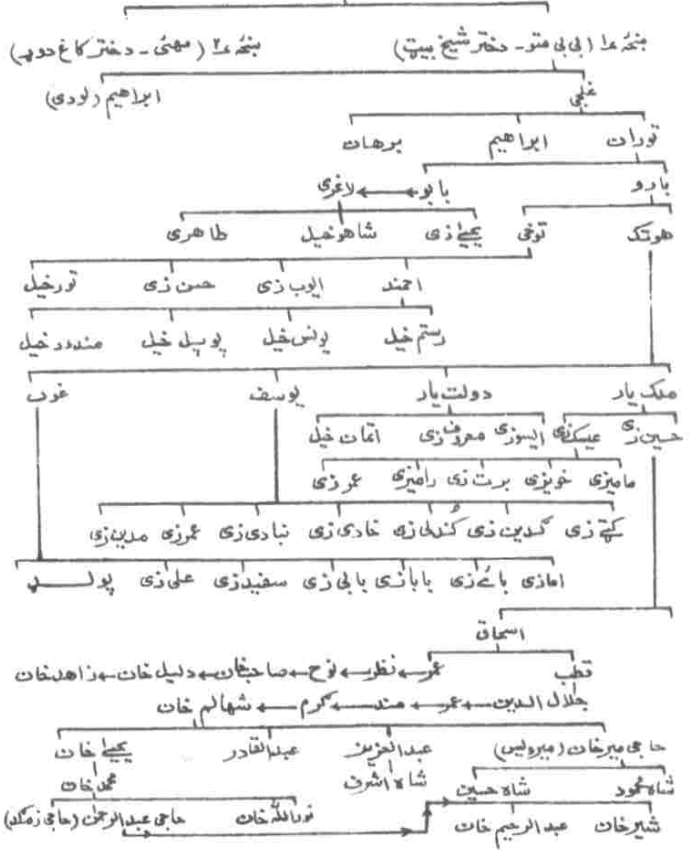 منځه ۱ (بی بی متو - دختر شیخ بیټ) منځه ۲ (مهئی - دختر کاغ دوړ)
غلجی ابراهیم (لودی)
توران ابراهیم برهان
بارو بابو لاغری
یحیٰی زی شاهو خیل طاهری
هوتک توخی
احمند ایوب زی حسن زی تور خیل
رستم خیل یونس خیل پوپل خیل مندد خیل
ملک یار دولت یار یوسف غوب
حسین زی عیسک زی ایسوزی معروف زی اتمان خیل
مامیزی خویزی برت زی رامیزی عمر زی
کټے زی گدین زی کُندلی زی خادی زی نبادی زی عمر زی مدین زی
اما زی بائے زی بابا زی بابی زی سفید زی علی زی پولـ
اسحاق
قطب عمر نظر نوح صاحب خان دلیل خان زاهد خان
جلال الدین عمر مند کرم شهالم خان
حاجی میر خان (میرویس) عبد العزیز عبد القادر یحیٰی خان
شاه محمود شاه حسین شاه اشرف محمد خان
شیر خان عبد الرحیم خان نور الله خان حاجی عبد الرحمن (حاجی زمکد)